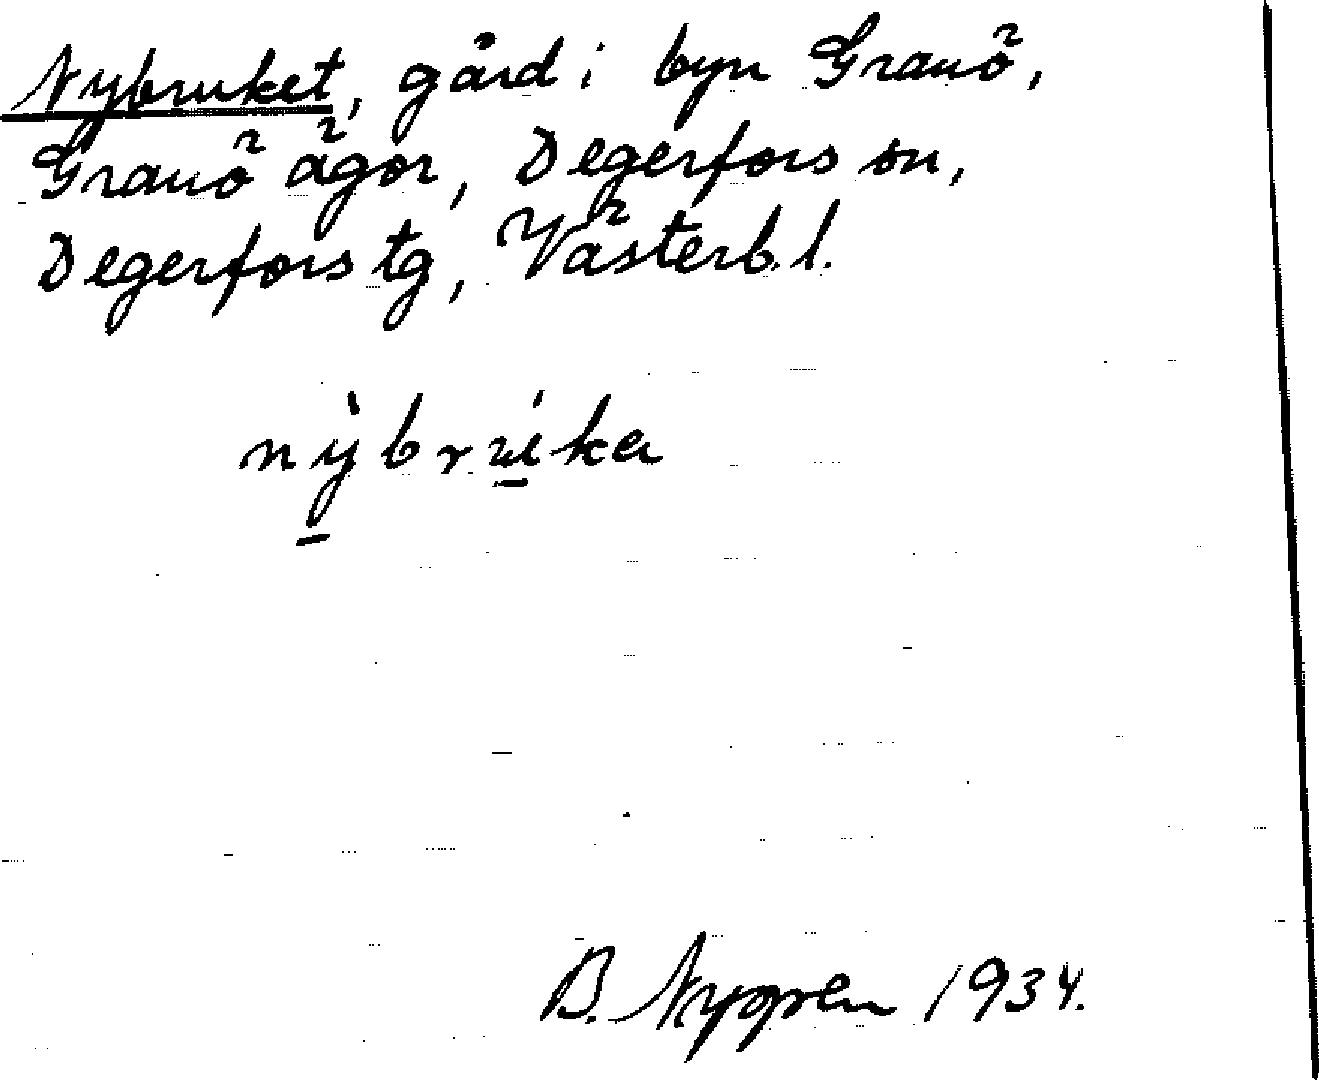 Nybruket, gård i byn Granö,
Granö ägor, Degerfors sn,
Degerfors tg, Västerb. l.
nỳbrúka
B. Nygren 1934.